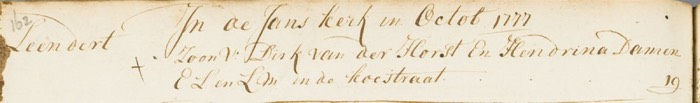 162
In de Jans kerk in Octob 1777
Leendert Zoon V. Dirk van der Horst En Hendrina Damen
E L en L M in de koestraat 19